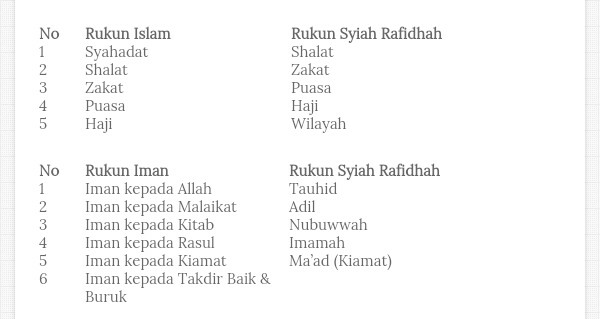 No Rukun Islam Rukun Syiah Rafidhah
1 Syahadat Shalat
2 Shalat Zakat
3 Zakat Puasa
4 Puasa Haji
5 Haji Wilayah
No Rukun Iman Rukun Syiah Rafidhah
1 Iman kepada Allah Tauhid
2 Iman kepada Malaikat Adil
3 Iman kepada Kitab Nubuwwah
4 Iman kepada Rasul Imamah
5 Iman kepada Kiamat Ma’ad (Kiamat)
6 Iman kepada Takdir Baik &
Buruk